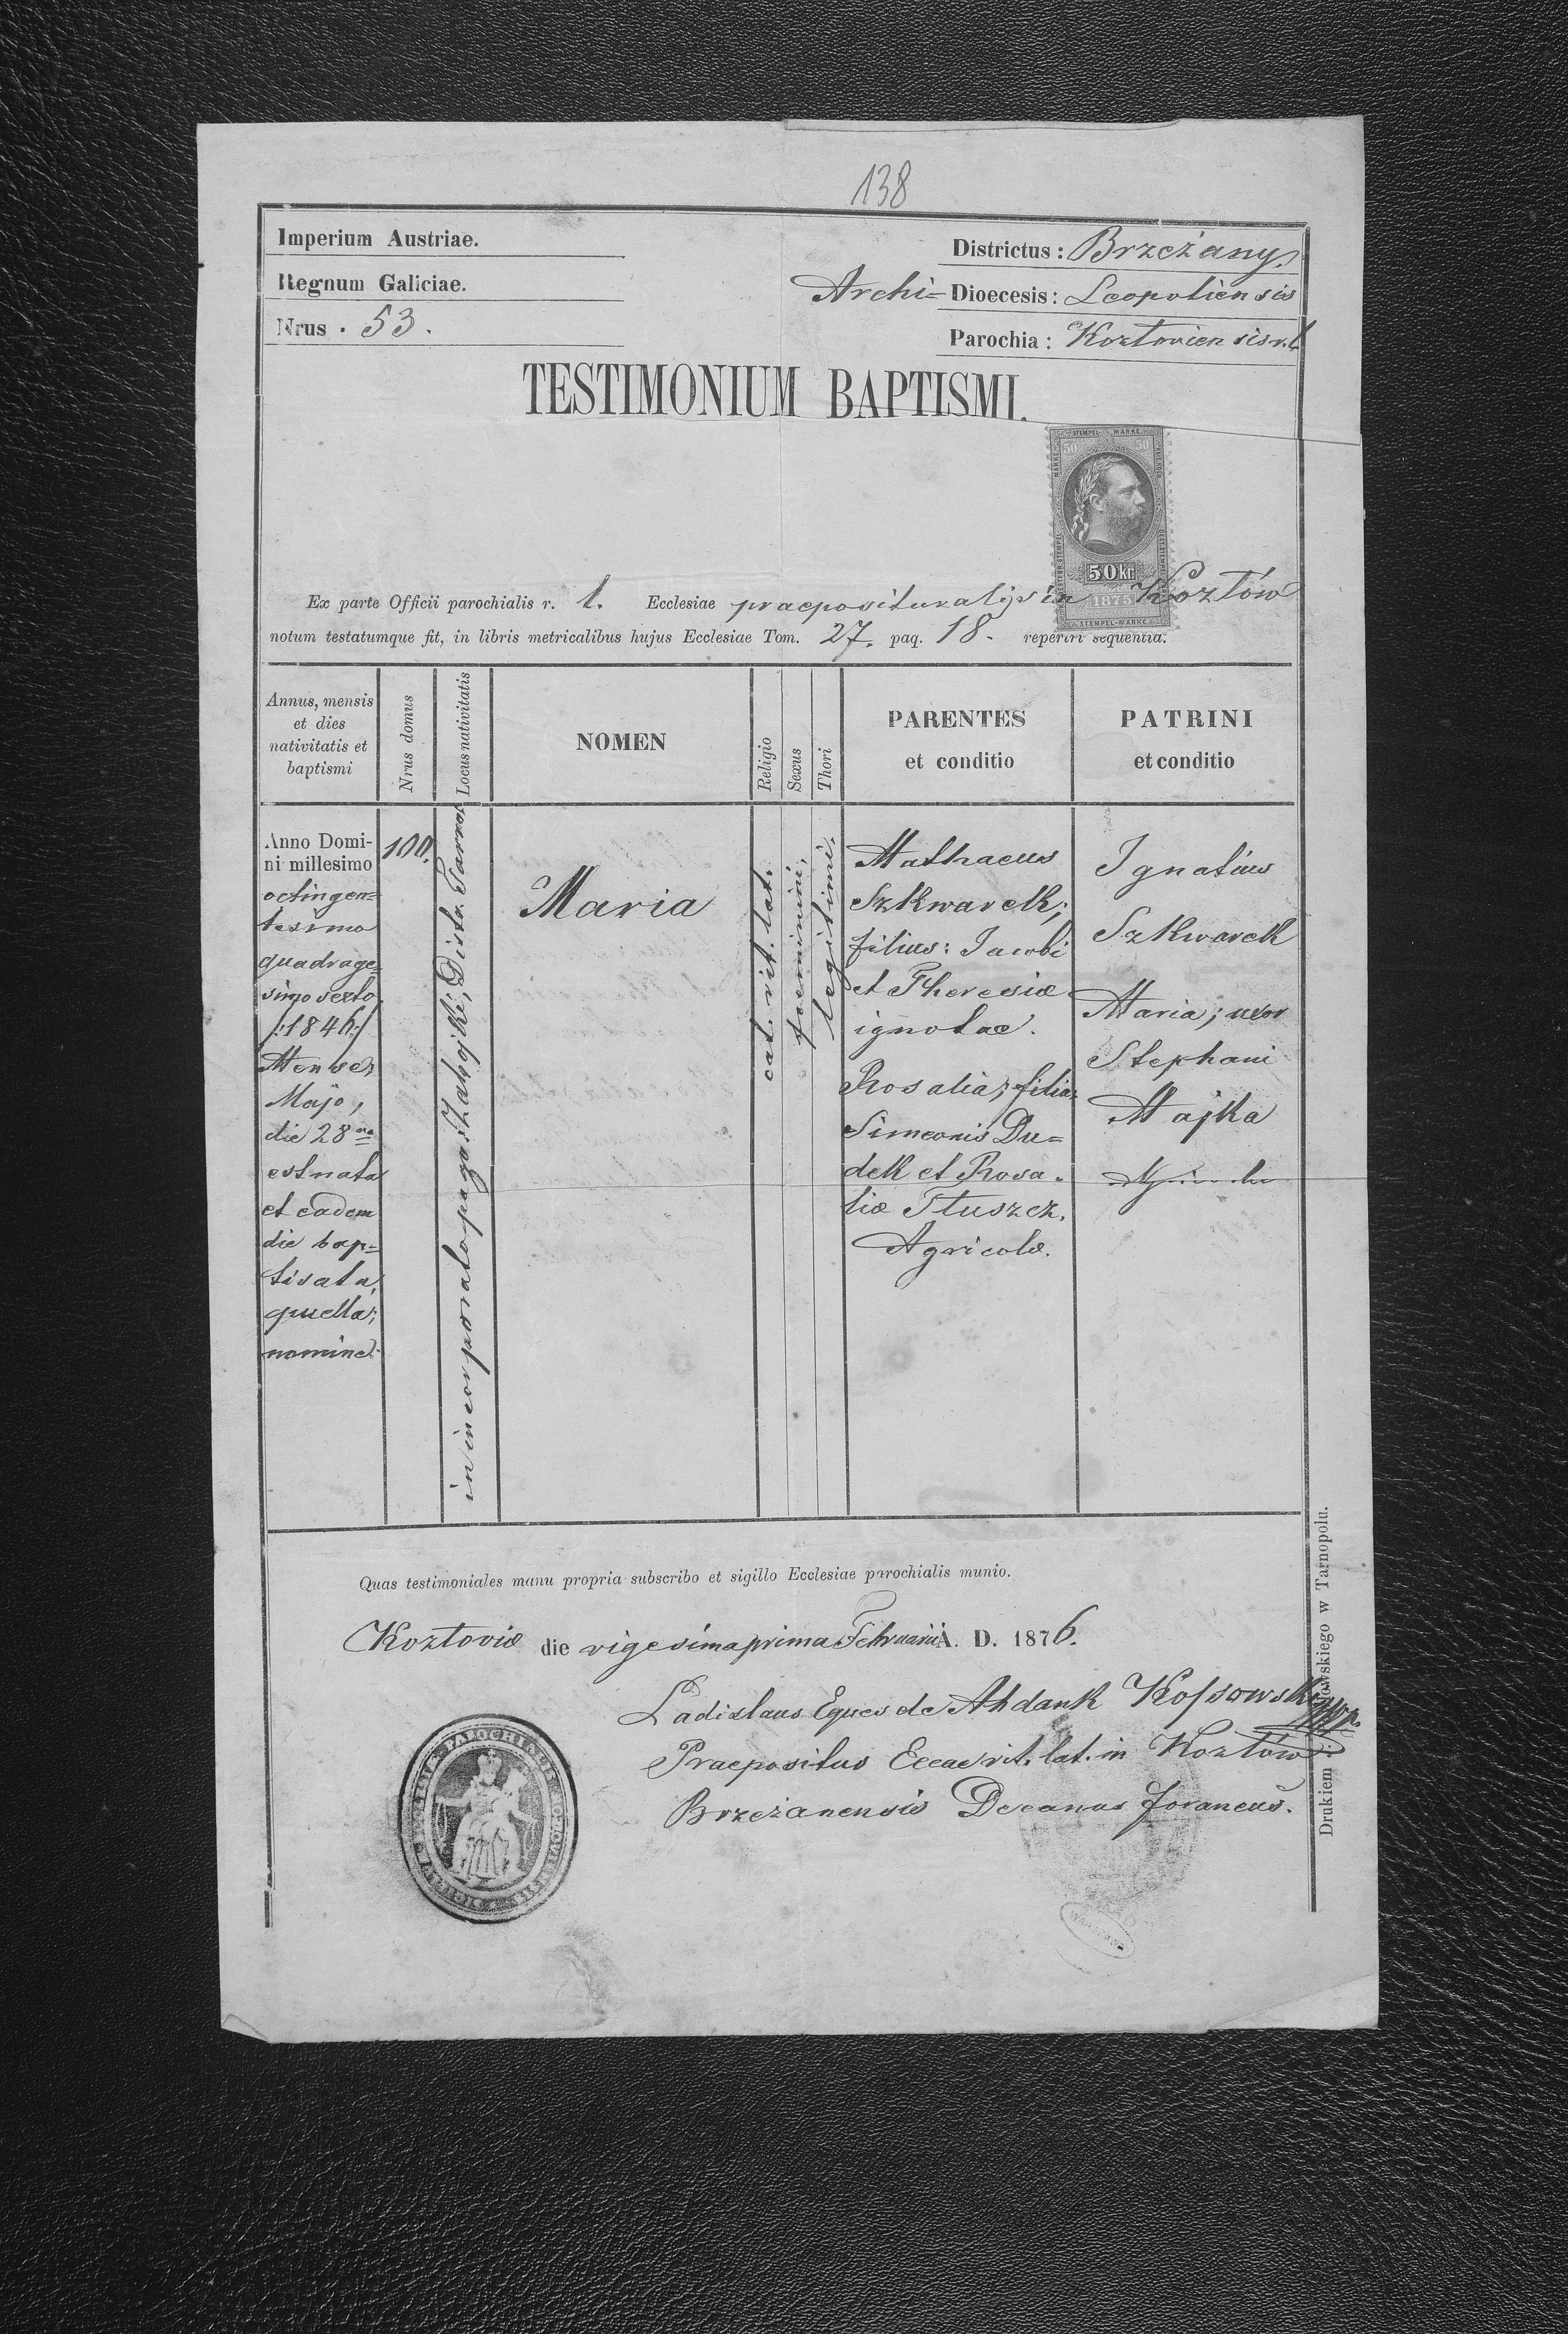 138
Imperium Austriae.
Regnum Galiciae.
Nrus . 53.
Districtus: Brzeżany
Archi= Dioecesis: Leopoliensis
Parochia: Kozłoviensis r. l.
TESTIMONIUM BAPTISMI.
STEMPEL- MARKE.
50 50
50 kr
1875
STEMPEL-MARKE
Ex parte Officii parochialis r. l. Ecclesiae praeposituralis in Kozłów
notum testatumque fit, in libris metricalibus hujus Ecclesiae Tom. 27. pag. 18. reperiri sequentia.
Annus, mensis
et dies
nativitatis et
baptismi
Nrus domus
Locus nativitatis
NOMEN
Religio
Sexus
Thori
PARENTES
et conditio
PATRINI
et conditio
Anno Domi-
ni millesimo
octingen=
tesimo
quadrage=
simo sexto
/:1846:/
Mense
Majo,
die 28va
est nata
et eadem
die bap=
tisata,
puella;
nomine:
100.
in incorporato pago Zabojki; Distr. Tarnop.
Maria
cat. rit. lat.
foeminini,
legitimi.
Mathaeus
Szkwarek;
filius: Jacobi
et Theresiæ
ignotæ.
Rosalia; filia:
Simeonis Du=
dek et Rosa=
liæ Tłuszcz.
Agricolæ.
Ignatius
Szkwarek
Maria; uxor
Stephani
Majka
Quas testimoniales manu propria subscribo et sigillo Ecclesiae parochialis munio.
Kozłoviæ die vigesima prima Februarii A. D. 1876.
Ladislaus Eques de Abdank Kossowski mp.
Praepositus Eccae rit. lat. in Kozłów
Brzeżanensis Decanus foraneus.
w Tarnopolu.
Drukiem